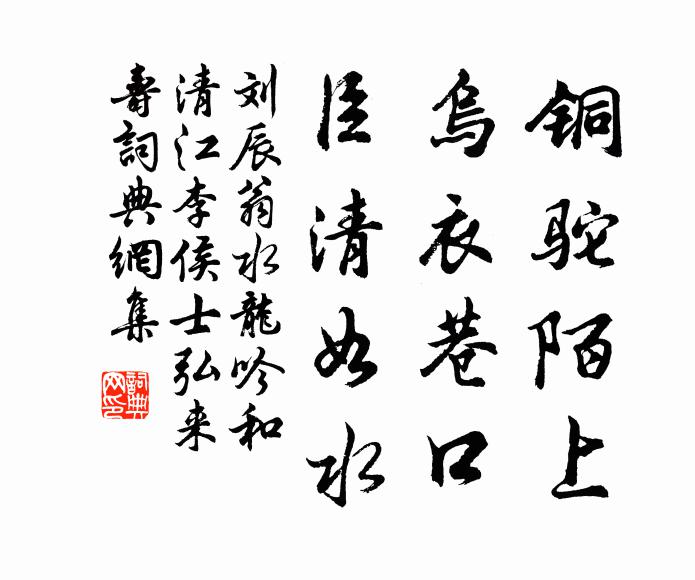 铜驼陌上
乌衣巷口
臣清如水
刘辰翁水龍吟和
清江李侯士弘来
壽詞典網集
詞典
网印